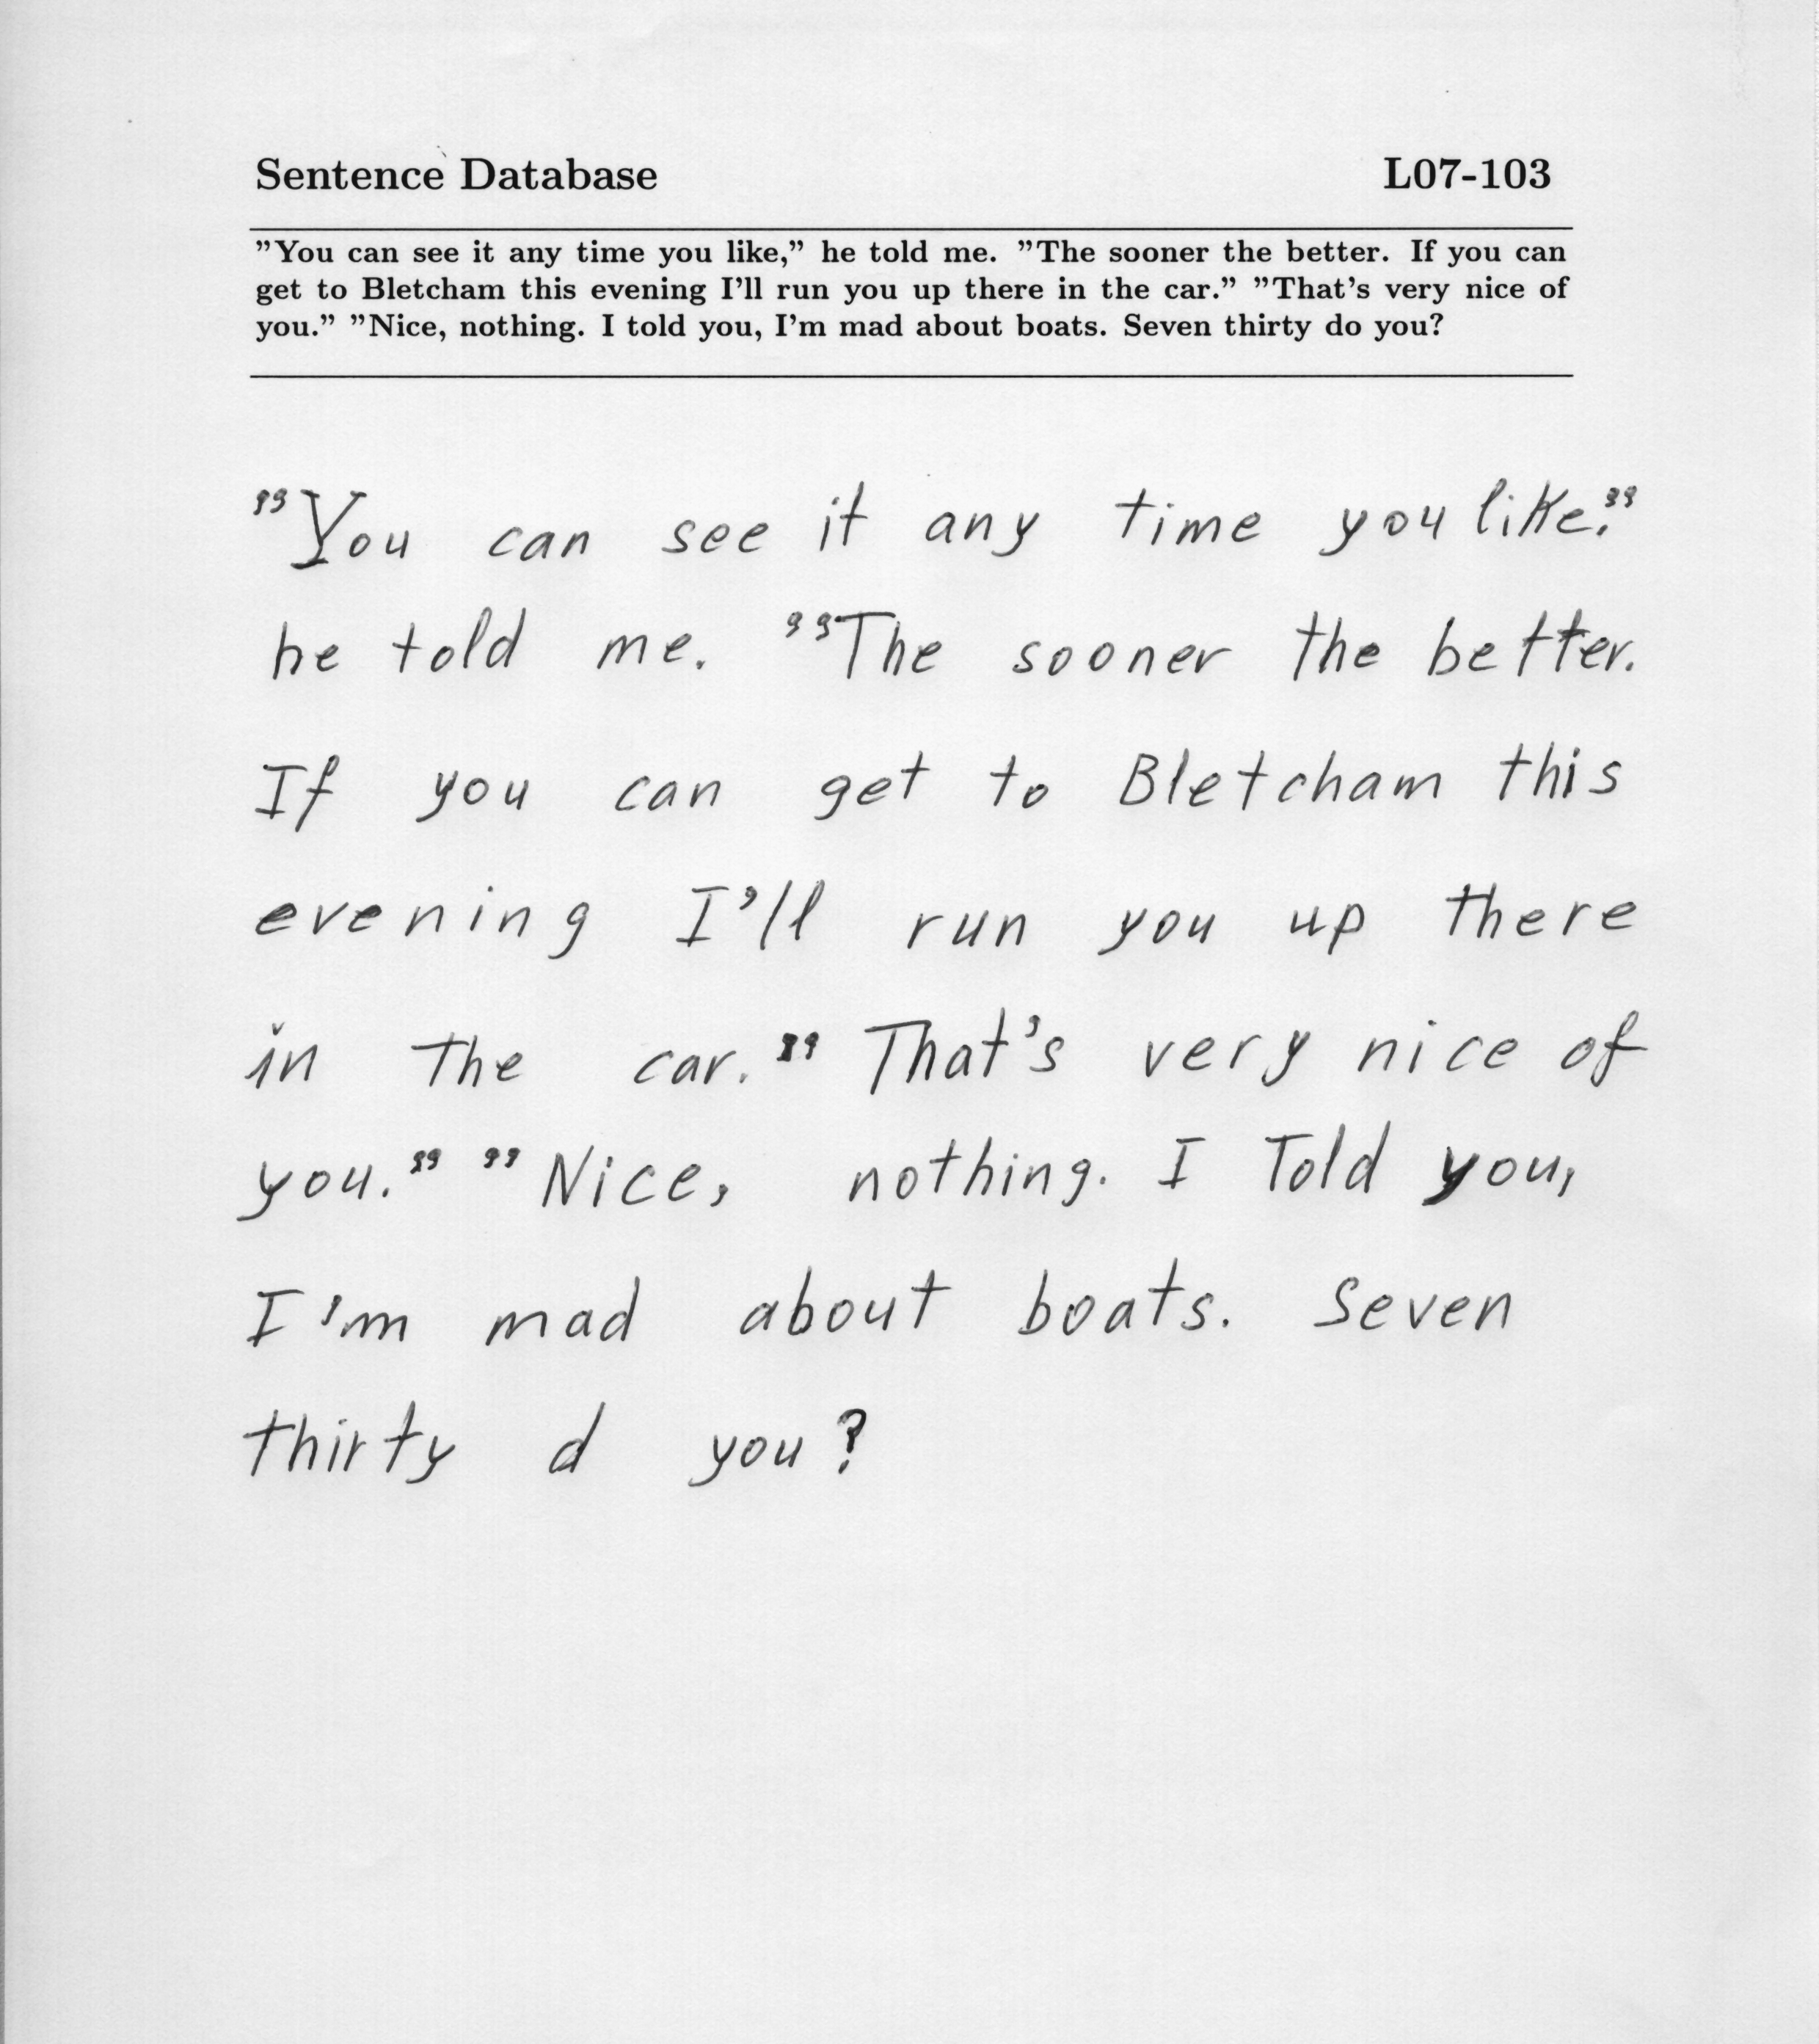 Sentence Database L07-103
”You can see it any time you like,” he told me. ”The sooner the better. If you can
get to Bletcham this evening I’ll run you up there in the car.” ”That’s very nice of
you.” ”Nice, nothing. I told you, I’m mad about boats. Seven thirty do you?
”You can see it any time you like.”
he told me. ”The sooner the better.
If you can get to Bletcham this
evening I’ll run you up there
in the car.” That’s very nice of
you.” ”Nice, nothing. I Told you,
I’m mad about boats. Seven
thirty d you?